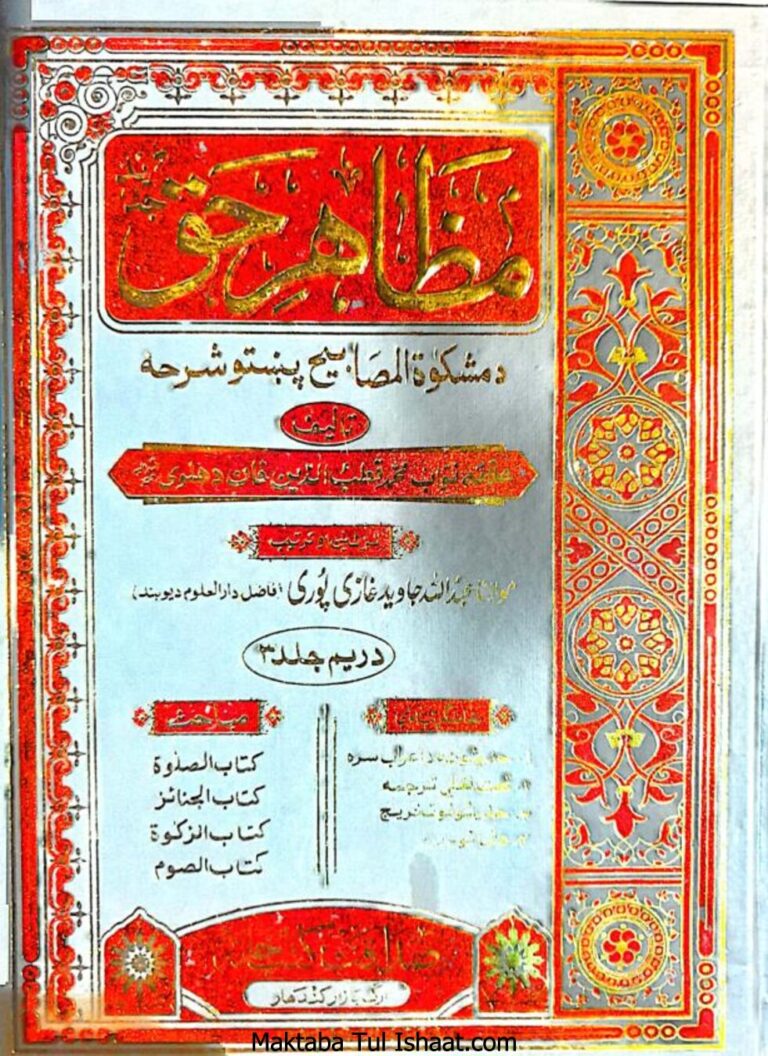 مظاهر حق
جدید
د مشکوٰة المصابیح پښتو شرحه
تالیف
علامه نواب محمد قطب الدین خان دهلوی
ترتیب
مولانا عبدالله جاوید غازی پوری (فاضل دارالعلوم دیوبند)
دریم جلد ۳
مباحث
کتاب الصلوٰة
کتاب الجنائز
کتاب الزکوٰة
کتاب الصوم
اعراب سره
ترجمه
تخریج
ارګ بازار کندهار
Maktaba Tul Ishaat.com